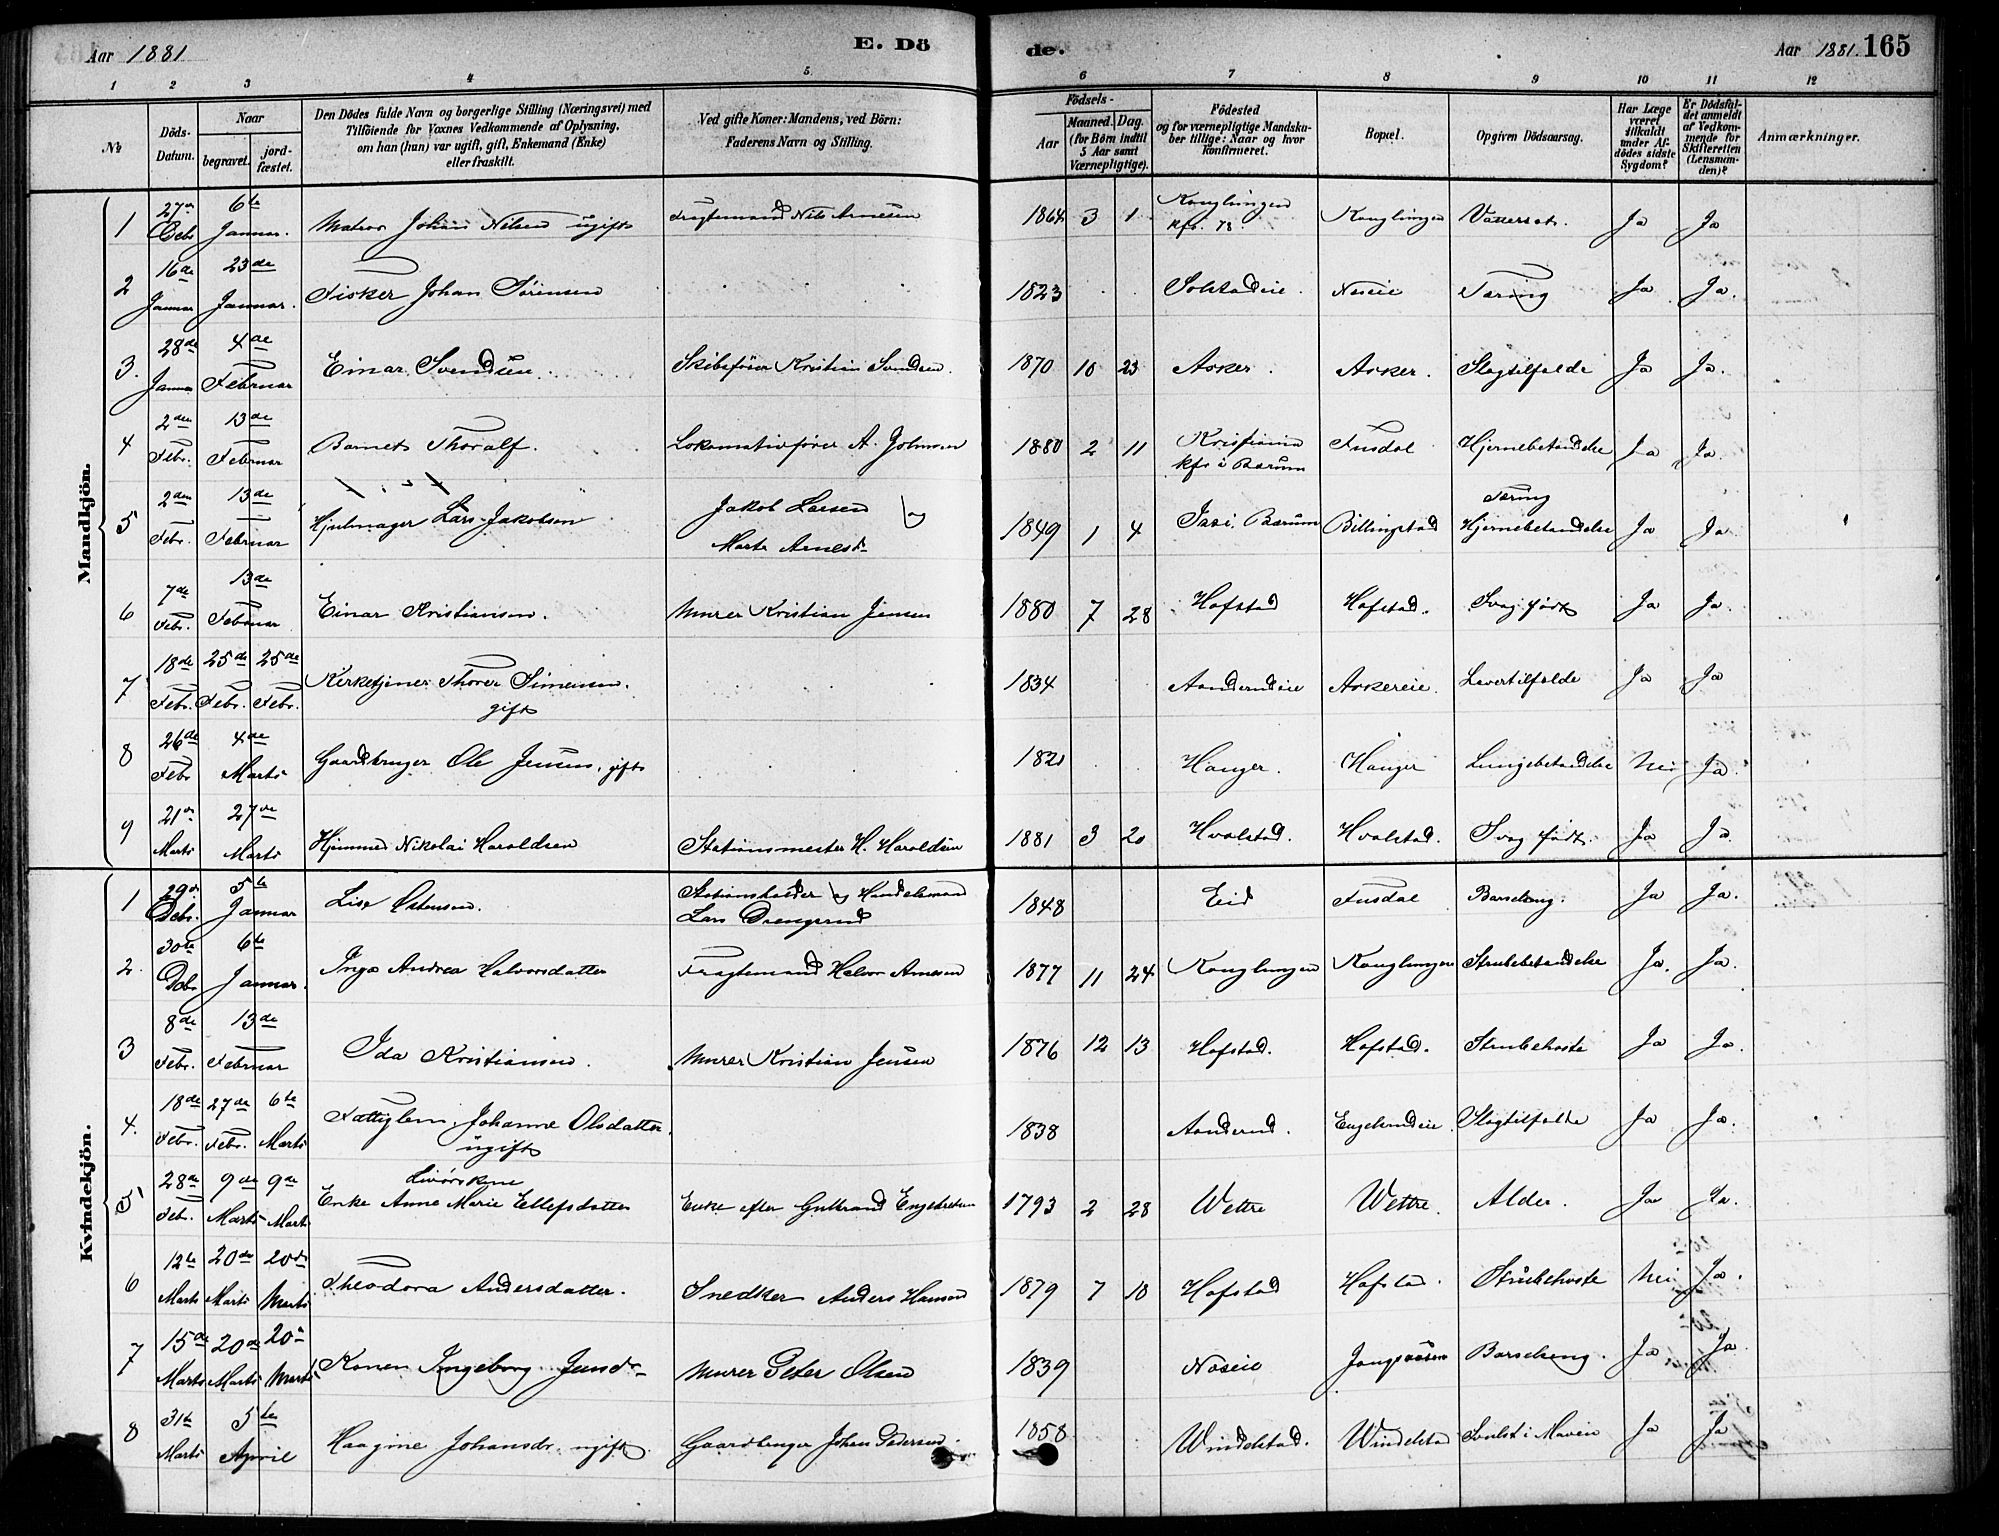 Aar 1881
E. Dö
de.
Aar 1881. 165
1 2 3 4 5 6 7 8 9 10 11 12
№
Döds-Datum.
Naar
begravet.
jord-fæstet.
Den Dödes fulde Navn og borgerlige Stilling (Næringsvei) med
Tilföiende for Voxnes Vedkommende af Oplysning,
om han (hun) var ugift, gift, Enkemand (Enke)
eller fraskilt.
Ved gifte Koner: Mandens, ved Börn:
Faderens Navn og Stilling.
Födsels-
Aar
Maaned. Dag.
(for Börn indtil
5 Aar samt
Værnepligtige).
Födested
og for værnepligtige Mandskaber tillige: Naar og hvor
konfirmeret.
Bopæl.
Opgiven Dödsaarsag.
Har Læge været tilkaldt under Afdödes sidste Sygdom?
Er Dödsfaldet anmeldt af Vedkommende for Skifteretten (Lensmanden)?
Anmærkninger.
Mandkjön.
1 27de Debr 6te Januar. Matros Johan Nilsen ugift Fragtemand Nils Arnesen 1864 3 1 Konglungen kfr. 78. Konglungen Vattersot. Ja Ja
2 16de Januar 23de Januar. Fisker Johan Sörensen 1823 Solstadeie. Neseie Tæring Ja Ja.
3. 28de Januar 4de Februar Einar Svendsen. Skibsfører Kristian Svendsen. 1870 10 23 Asker. Asker. Slagtilfælde Ja Ja.
4 2den Febr. 13de Februar Barnet Thoralf. Lokomativfører A. Johnsen 1880 2 11 Kristiania kfr i Bærum Fusdal Hjernebetændelse Ja Ja.
5 2den Febr. 13de Februar Hjulmager Lars Jakobsen Jakob Larsen og Marte Arnesdr 1849 1 4 Bærum Billingstad Tæring Hjernebetændelse Ja Ja
6 7de Febr. 13de Februar Einar Kristiansen. Murer Kristian Jensen 1880 7 28 Hofstad Hofstad. Svag født Ja Ja.
7 18de Febr. 25de Febr. 25de Febr. Kirketjener Thorer Simensen. gift 1834 Aanderudeie Askereie. Levertilfælde Ja Ja
8 26de Febr 4de Marts Gaardbruger Ole Jensen, gift 1821 Hanger. Hanger Lungebetændelse Nei Ja.
9 21de Marts 27de Marts Nikolai Haroldsen Stationsmester H. Haroldsen 1881 3 20 Hvalstad. Hvalstad. Svag født. Ja Ja
Kvindekjön.
1 29de Debr. 5te Januar Lise Ostensen. Stationsholder og Handelsmand Lars Drengsrud 1848 Eid Fusdal Barselseng. Ja Ja.
2. 30te Debr 6te Januar. Inga Andrea Halvorsdatter Fragtemand Halvor Arnesen 1877 11 24 Konglungen Konglungen Strubebetændelse Ja. Ja.
3 8de Febr. 13de Februar Ida Kristiansen. Murer Kristian Jensen 1876 12 13 Hofstad. Hofstad. Strubehoste Ja Ja.
4. 18de Febr. 27de Febr. 6te Marts Fattiglem Johanne Olsdatter. ugift 1838 Aanderud. Engelsrudeie Slagtilfælde Ja Ja.
5 28de Feb. 9de Marts 9de Marts Livörskone Enke Anne Marie Ellefsdatter Enke efter Gulbrand Engebretsen 1793 2 28 Wettre Wettre. Alder. Ja Ja.
6 12te Marts 20de Marts 20de Marts Theodora Andersdatter. Snedker Anders Hansen 1879 7 10 Hofstad Hofstad Strubehoste Nei Ja.
7 15de Marts 20de Marts 20de Marts Konen Ingeborg Jensdr Murer Peter Olsen 1839 Neseie Jongsaasen Barselseng. Ja Ja.
8 31te Marts 5te April Haagine Johansdr ugift. Gaardbruger Johan Pedersen. 1858 Windelstad. Windelstad Svulst i Maven Ja Ja